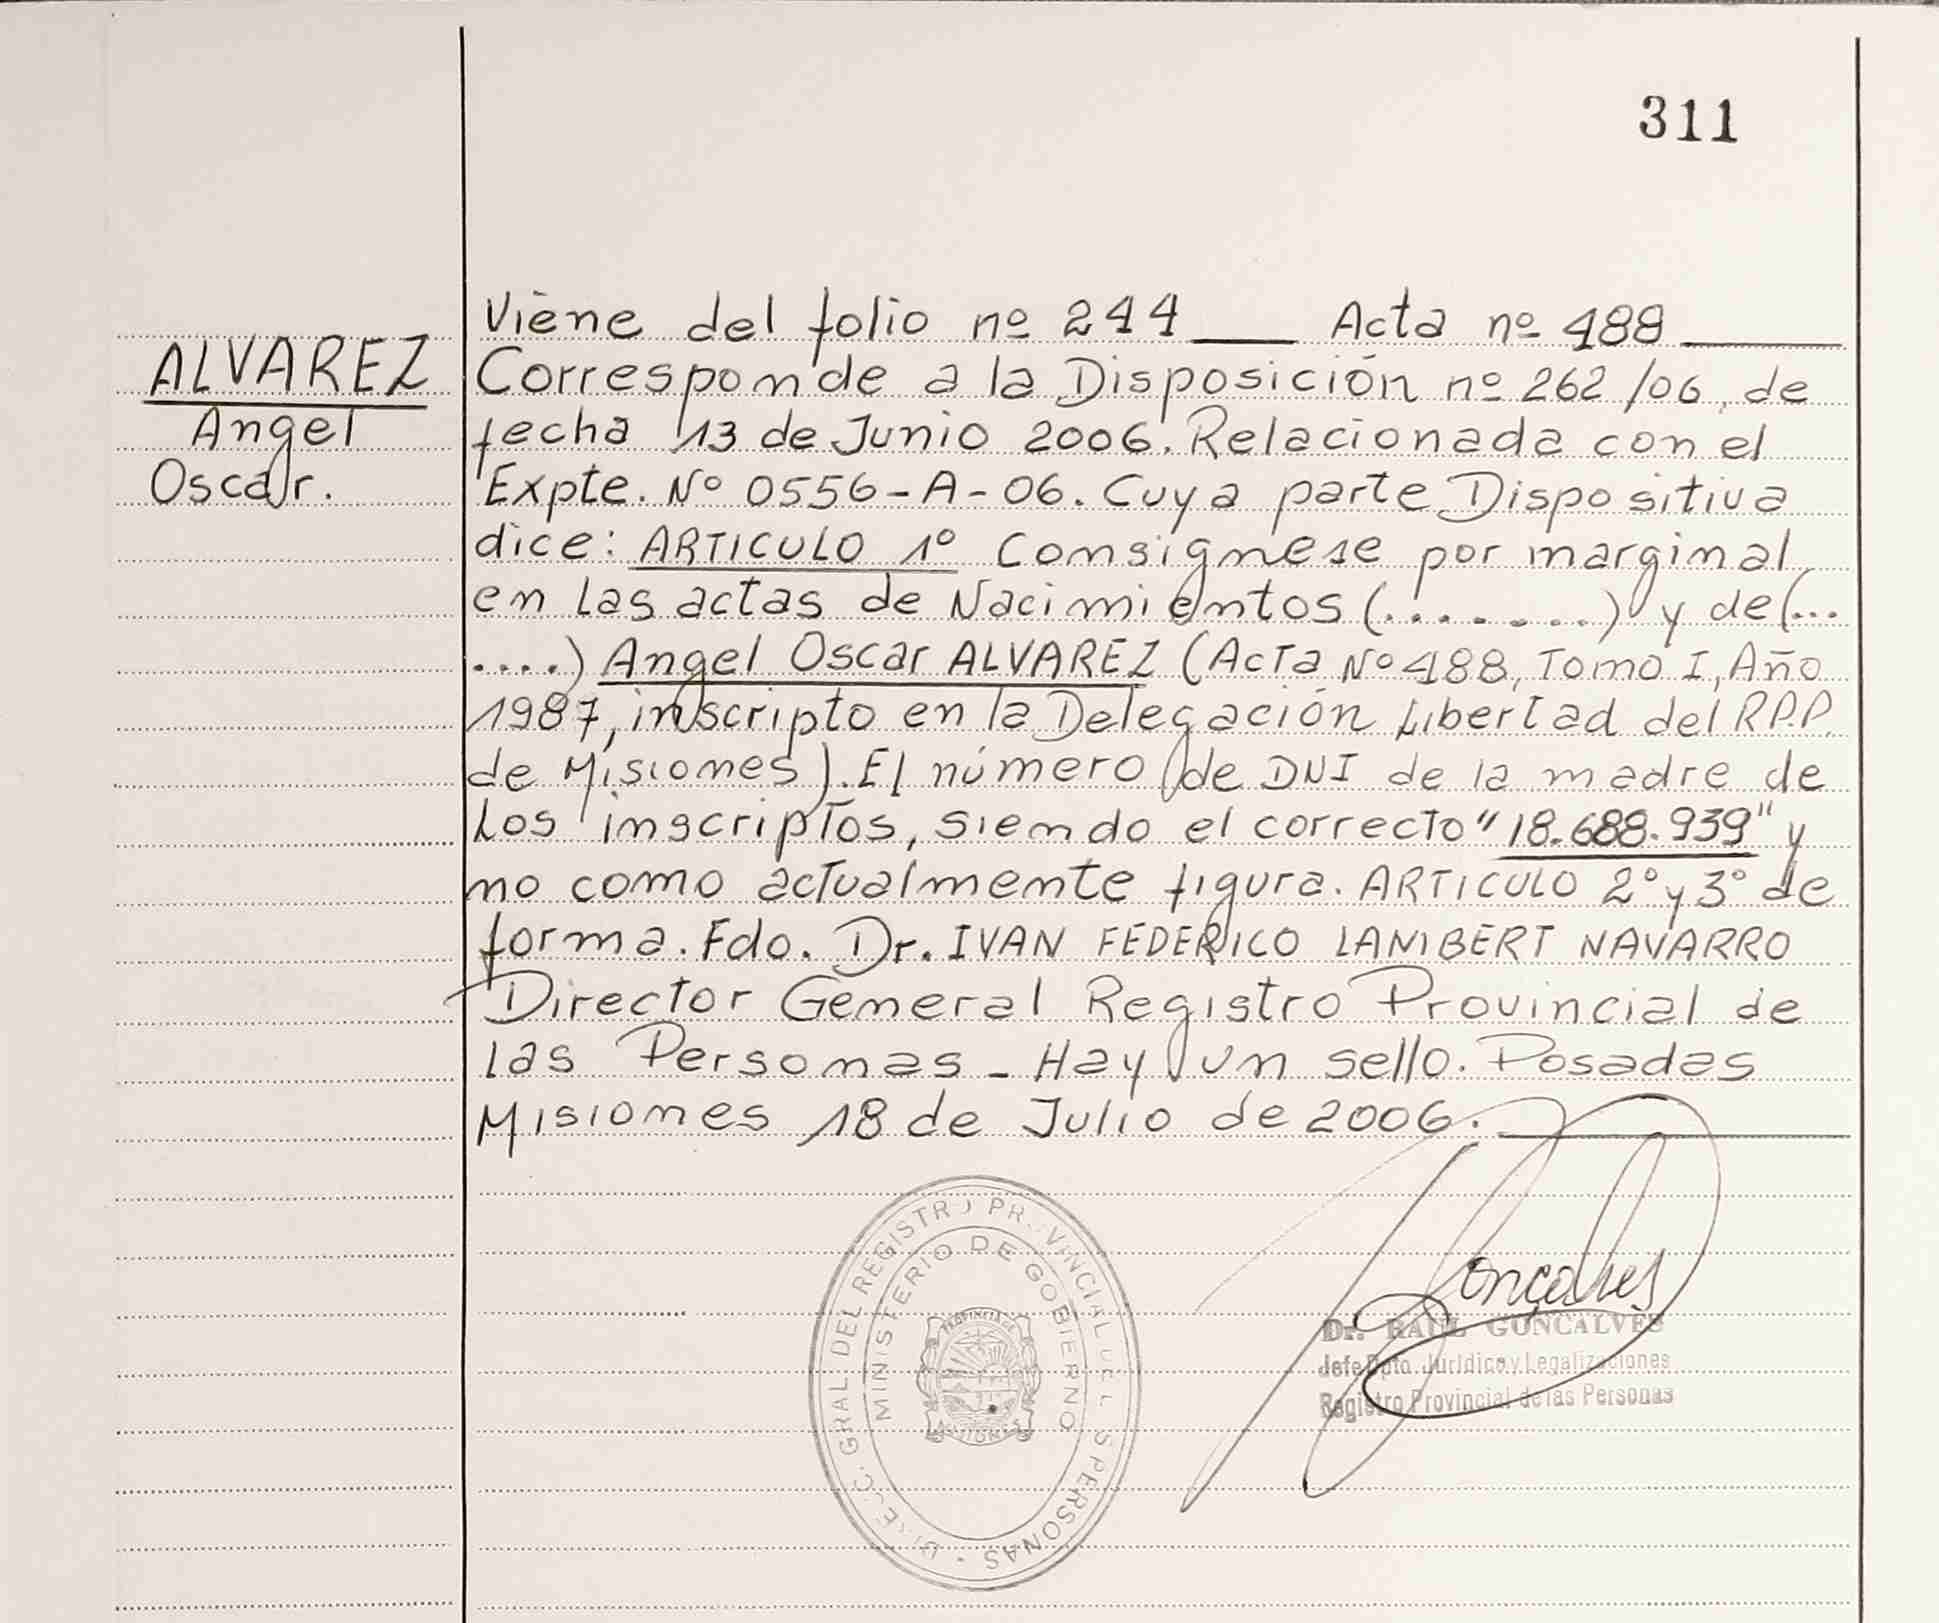 311
Viene del folio nº 244 ___ Acta nº 488 ___
ALVAREZ
Angel
Oscar.
Corresponde a la Disposición nº 262/06, de
fecha 13 de Junio 2006. Relacionada con el
Expte. Nº 0556-A-06. Cuya parte Dispositiva
dice: ARTICULO 1º Consignese por marginal
en las actas de Nacimientos (........) y de (...
....) Angel Oscar ALVAREZ (Acta Nº 488, Tomo I, Año
1987, inscripto en la Delegación Libertad del R.P.P.
de Misiones). El número de DNI de la madre de
Los inscriptos, siendo el correcto "18.688.939" y
no como actualmente figura. ARTICULO 2º y 3º de
forma. Fdo. Dr. IVAN FEDERICO LAMBERT NAVARRO
Director General Registro Provincial de
las Personas - Hay un sello. Posadas
Misiones 18 de Julio de 2006.
DIREC. GRAL. DEL REGISTRO PROVINCIAL DE LAS PERSONAS
MINISTERIO DE GOBIERNO
PROVINCIA DE
MISIONES
Gonçalves
Dr. RAUL GONCALVES
Jefe Dpto. Jurídico y Legalizaciones
Registro Provincial de las Personas